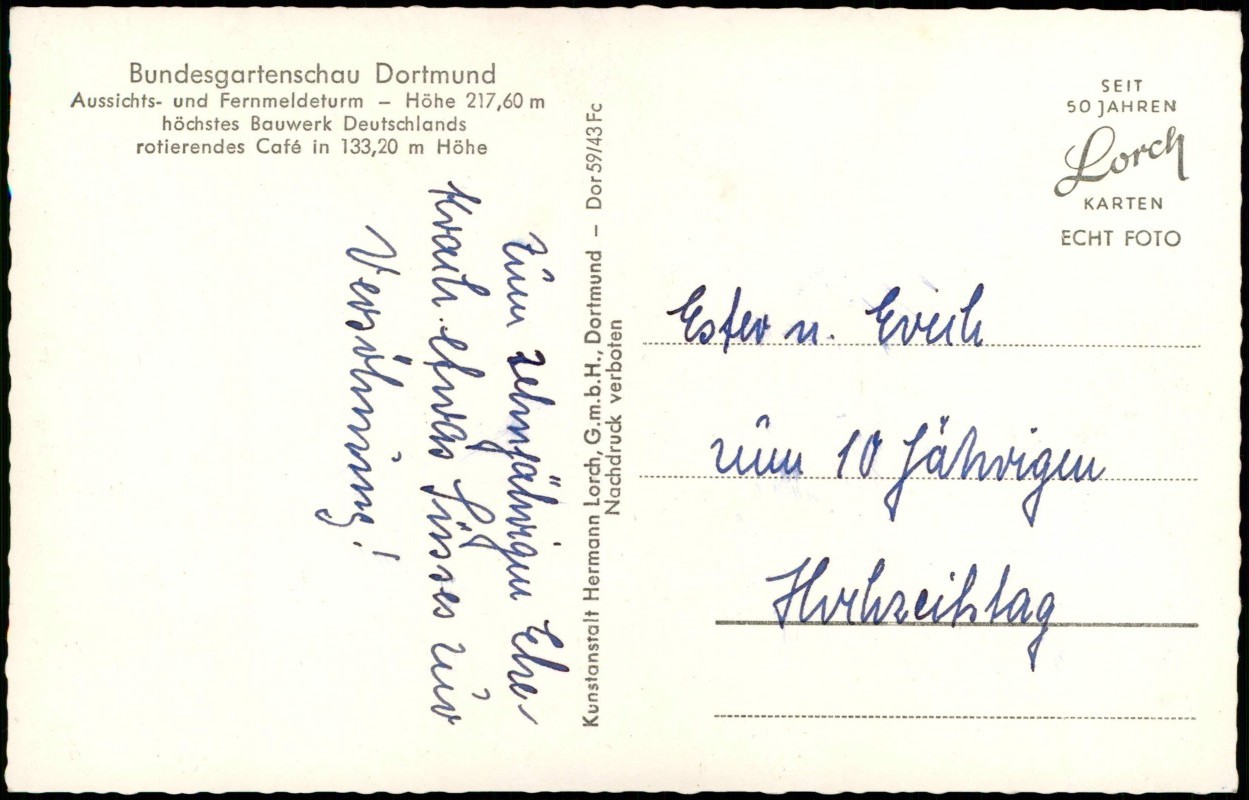 Bundesgartenschau Dortmund
Aussichts- und Fernmeldeturm – Höhe 217,60 m
höchstes Bauwerk Deutschlands
rotierendes Café in 133,20 m Höhe
Zum zehnjährigen Ehe-
Krach etwas Süsses zur
Versöhnung!
Kunstanstalt Hermann Lorch, G.m.b.H., Dortmund – Dor 59/43 Fc
Nachdruck verboten
SEIT
50 JAHREN
Lorch
KARTEN
ECHT FOTO
Ester u. Erich
zum 10 Jährigen
Hochzeitstag